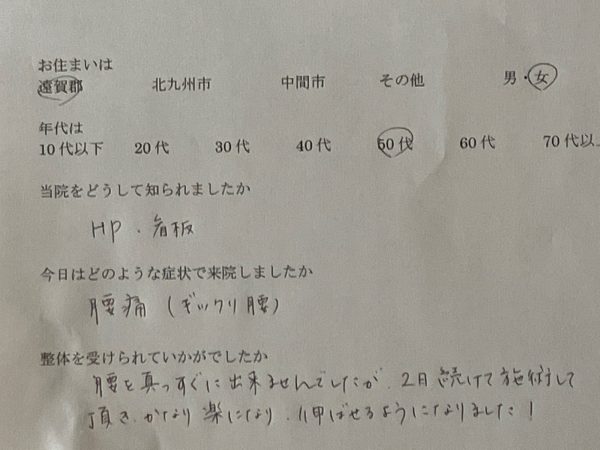 お住まいは
遠賀郡 北九州市 中間市 その他 男・女
年代は
10代以下 20代 30代 40代 50代 60代 70代以
当院をどうして知られましたか
HP・看板
今日はどのような症状で来院しましたか
腰痛(ギックリ腰)
整体を受けられていかがでしたか
腰を真っすぐに出来ませんでしたが、2日続けて施術して
頂き、かなり楽になり、伸ばせるようになりました!